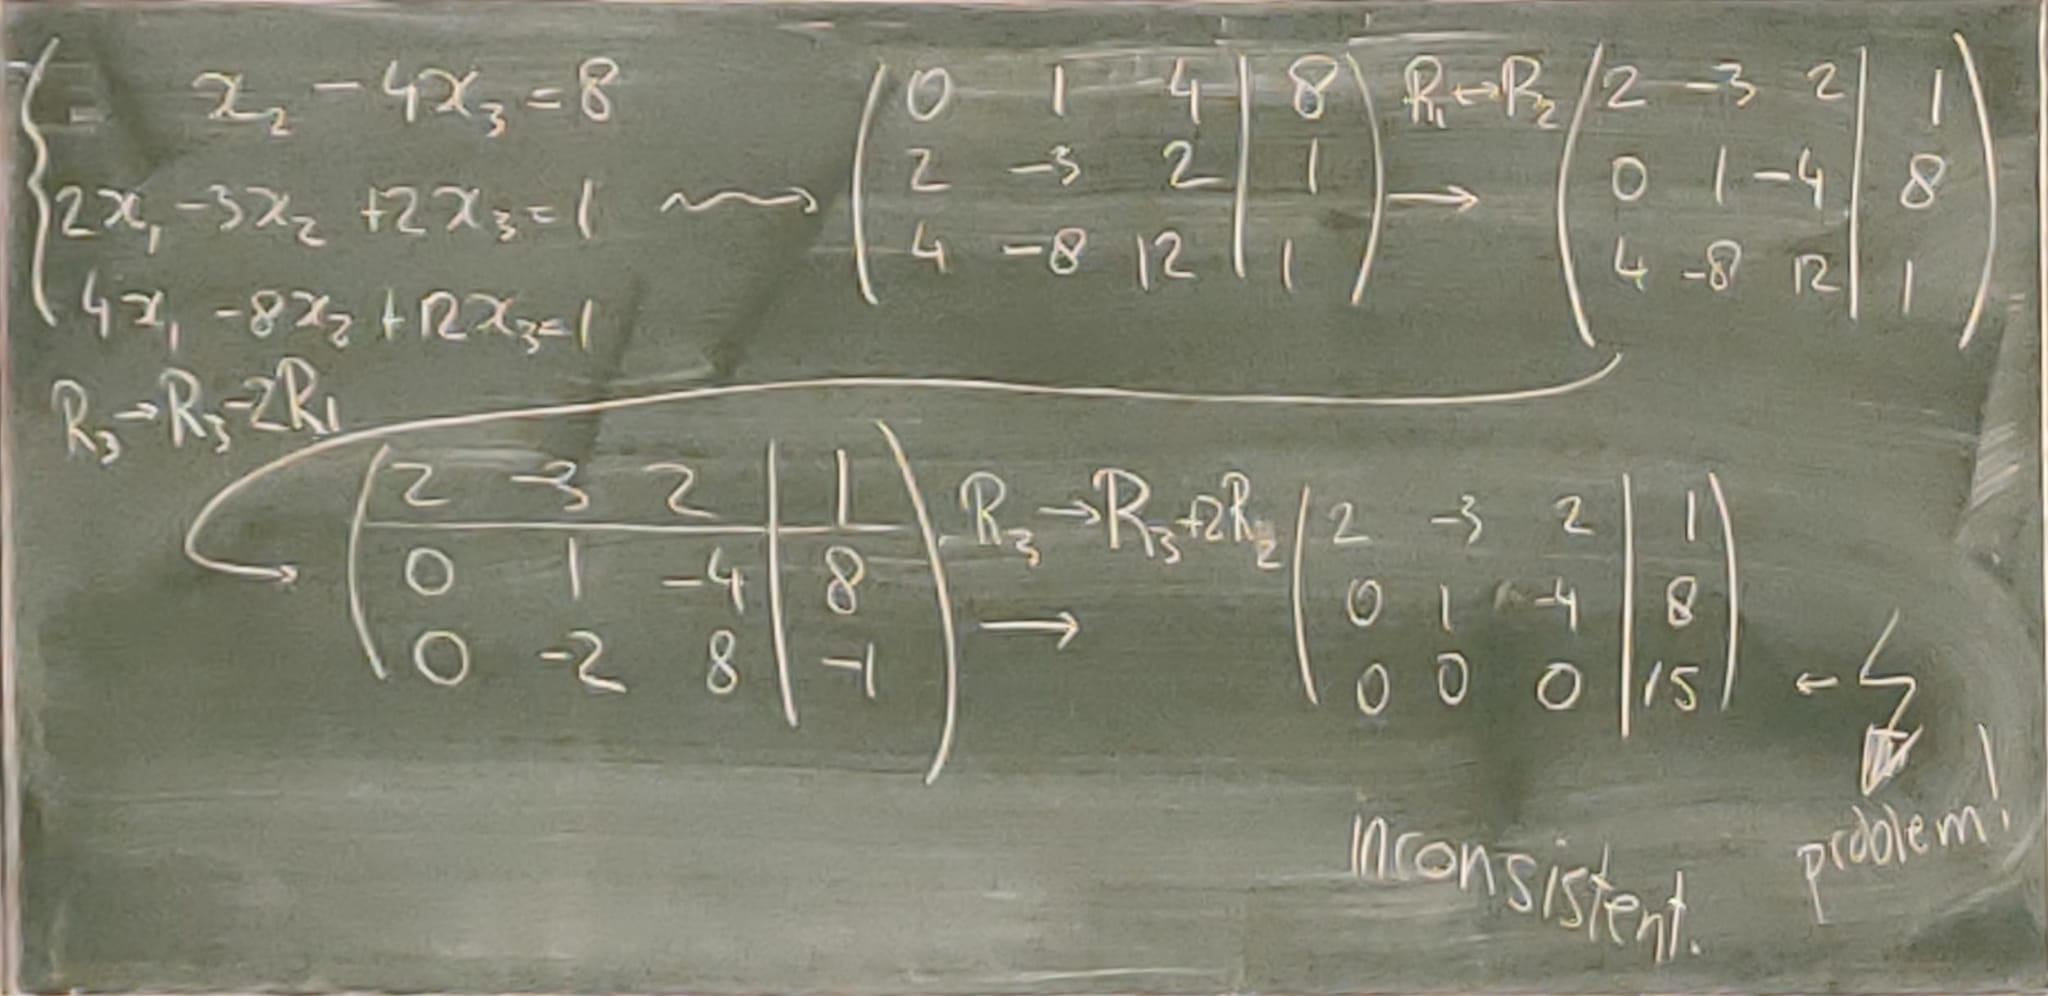 x₂ - 4x₃ = 8
2x₁ - 3x₂ + 2x₃ = 1
4x₁ - 8x₂ + 12x₃ = 1
0 1 -4 | 8
2 -3 2 | 1
4 -8 12 | 1
R₁ ↔ R₂
→
2 -3 2 | 1
0 1 -4 | 8
4 -8 12 | 1
R₃ → R₃ - 2R₁
2 -3 2 | 1
0 1 -4 | 8
0 -2 8 | -1
R₃ → R₃ + 2R₂
→
2 -3 2 | 1
0 1 -4 | 8
0 0 0 | 15
←
problem!
Inconsistent.